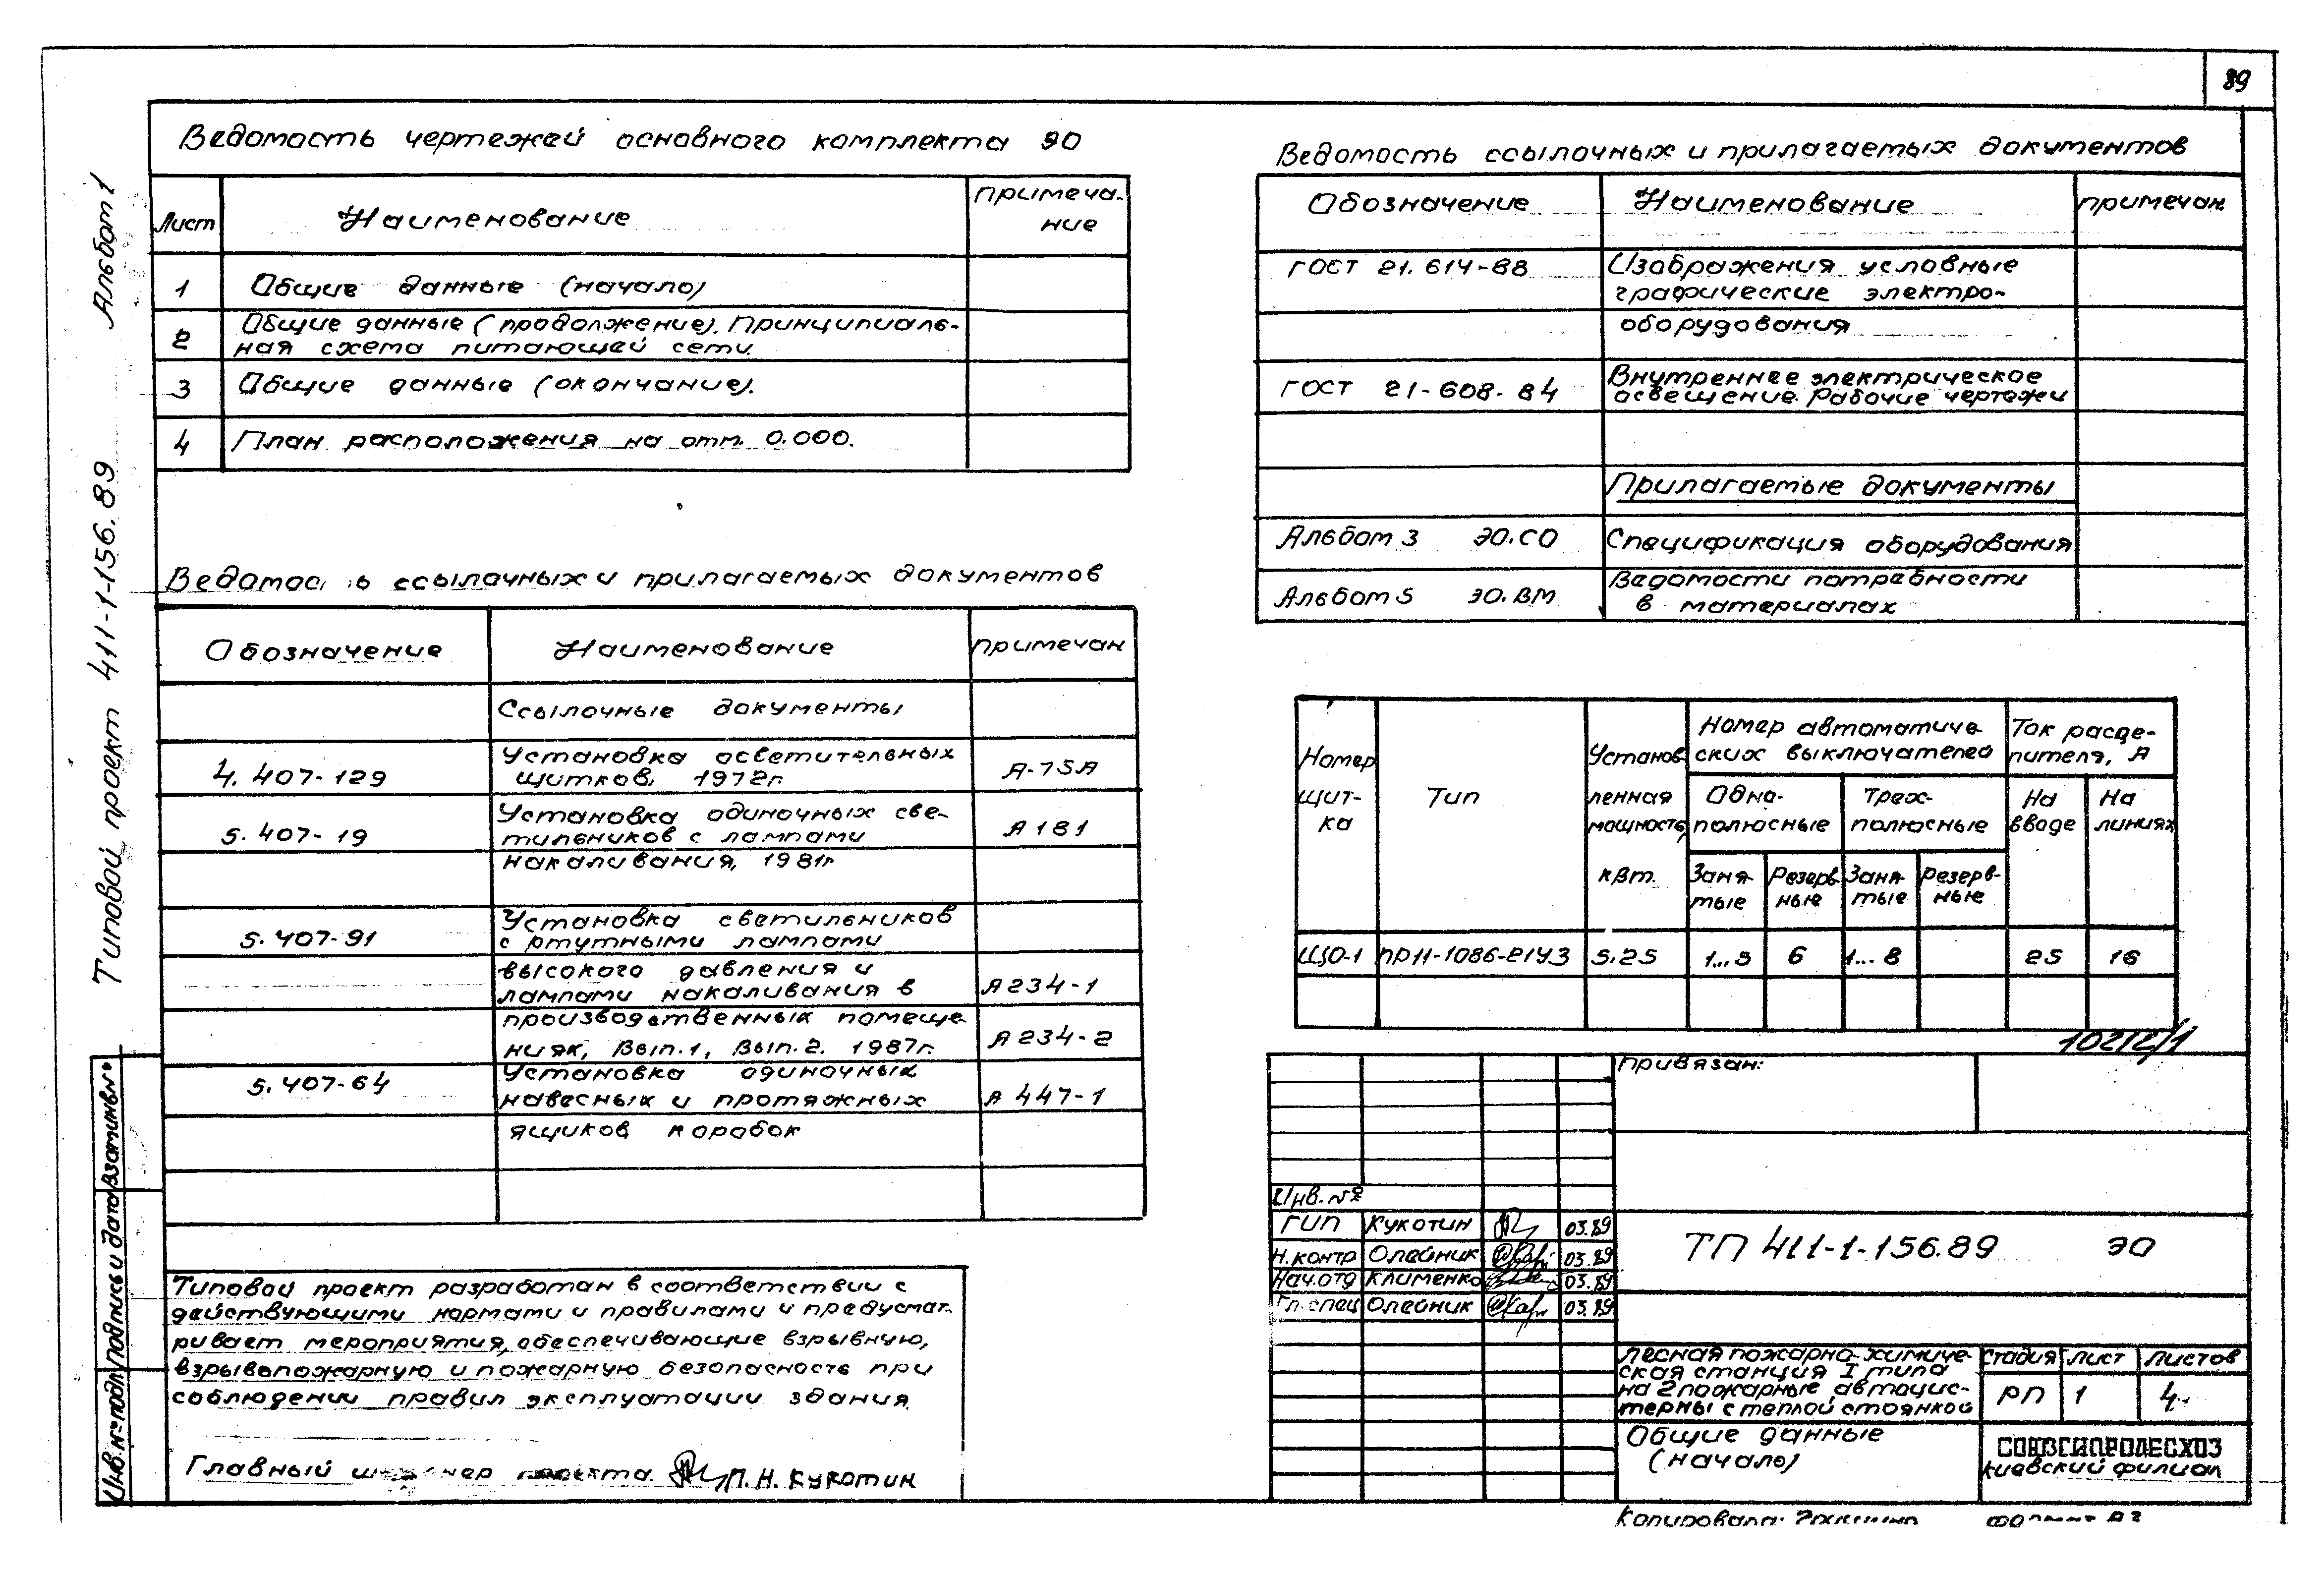 89
Альбом 1
Типовой проект 411-1-156.89
Ведомость чертежей основного комплекта ЭО
Лист
Наименование
Примеча-
ние
1
Общие данные (начало)
2
Общие данные (продолжение). Принципиаль-
ная схема питающей сети.
3
Общие данные (окончание).
4
План расположения на отм. 0.000.
Ссылочных и прилагаемых документов
Обозначение
Наименование
Примечан
Ссылочные документы
4.407-129
Установка осветительных
щитков, 1972г.
А-75А
5.407-19
Установка одиночных све-
тильников с лампами
накаливания, 1981г
А181
5.407-91
Установка светильников
с ртутными лампами
высокого давления и
лампами накаливания в
А234-1
производственных помеще-
ниях, Вып.1, Вып.2. 1987г.
А234-2
5.407-64
Установка одиночных
навесных и протяжных
А 447-1
ящиков, коробок
Типовой проект разработан в соответствии с
действующими нормами и правилами и предусмат-
ривает мероприятия, обеспечивающие взрывную,
взрывопожарную и пожарную безопасность при
соблюдении правил эксплуатации здания.
Главный проекта П.Н. Кукотин
Инв.№подл. Подпись и дата Взам.инв.№
Ведомость ссылочных и прилагаемых документов
Обозначение
Наименование
Примечан
ГОСТ 21.614-88
Изображения условные
графические электро-
оборудования
ГОСТ 21-608-84
Внутреннее электрическое
освещение. Рабочие чертежи
Прилагаемые документы
Альбом 3 ЭО.СО
Спецификация оборудования
Альбом 5 ЭО.ВМ
Ведомости потребности
в материалах
Номер
щит-
ка
Тип
Установ
ленная
мощность,
квт.
Номер автоматиче
ских выключателей
Одно-
полюсные
Трех-
полюсные
Заня
тые
Резерв
ные
Заня
тые
Резерв-
ные
Ток расце-
пителя, А
На
вводе
На
линиях
ЩО-1
ПР11-1086-21У3
5.25
6
1...8
25
16
Привязан:
Инв.№
ГИП Кукотин 03.89
Н.контр Олейник 03.89
Нач.отд Клименко 03.89
Гл.спец Олейник 03.89
ТП 411-1-156.89 ЭО
Лесная пожарно-химиче-
ская станция I типа
на 2 пожарные автоцис-
терны с теплой стоянкой
Стадия Лист Листов
РП 1 4
Общие данные
(начало)
СОЮЗГИПРОЛЕСХОЗ
Киевский филиал
Копировала: